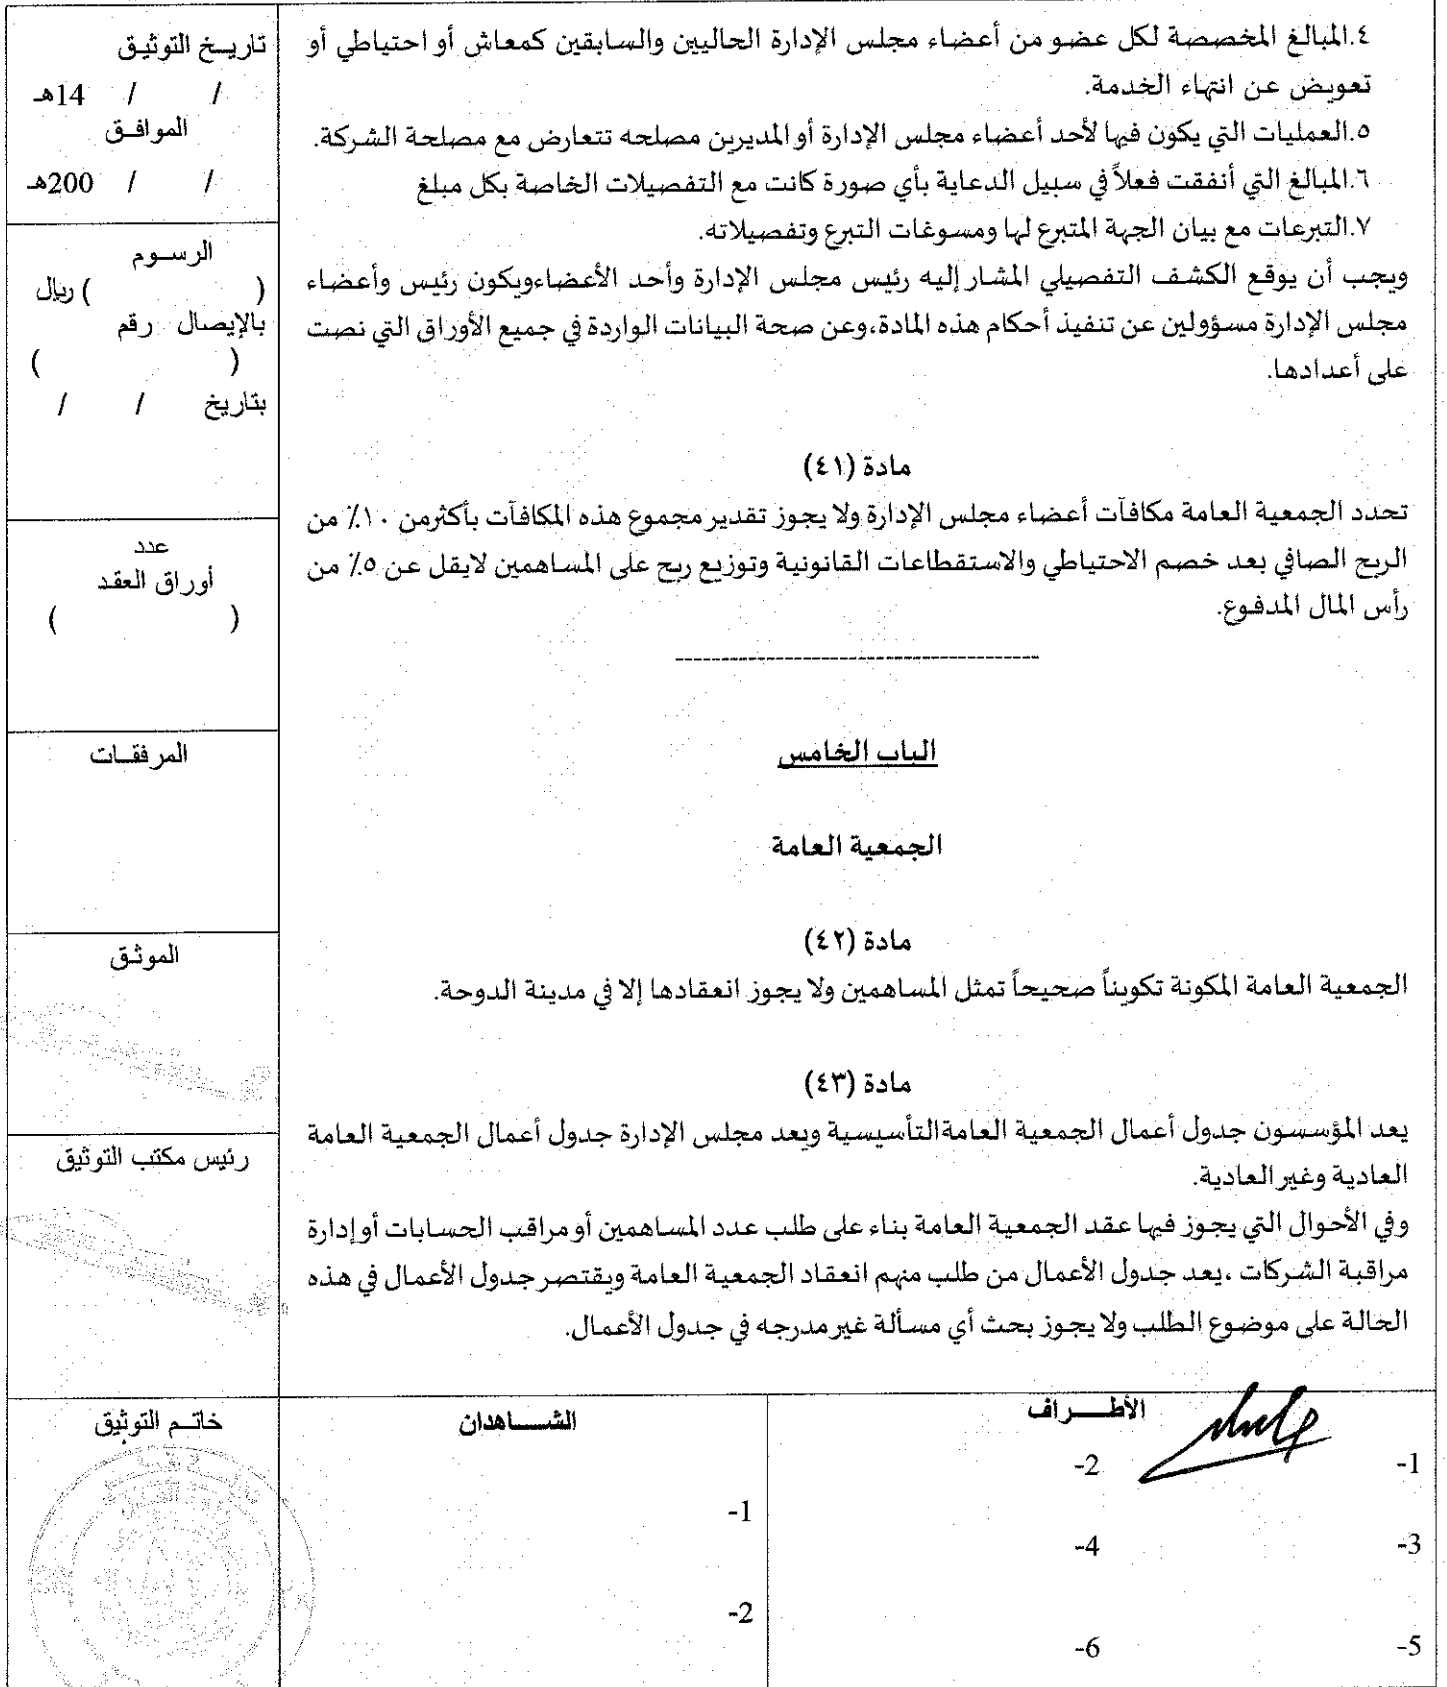 ٤.المبالغ المخصصة لكل عضو من أعضاء مجلس الإدارة الحاليين والسابقين كمعاش أو احتياطي أو
تعويض عن انتهاء الخدمة.
٥.العمليات التي يكون فيها لأحد أعضاء مجلس الإدارة أو المديرين مصلحه تتعارض مع مصلحة الشركة.
٦.المبالغ التي أنفقت فعلاً في سبيل الدعاية بأي صورة كانت مع التفصيلات الخاصة بكل مبلغ
٧.التبرعات مع بيان الجهة المتبرع لها ومسوغات التبرع وتفصيلاته.
ويجب أن يوقع الكشف التفصيلي المشار إليه رئيس مجلس الإدارة وأحد الأعضاء،ويكون رئيس وأعضاء
مجلس الإدارة مسؤولين عن تنفيذ أحكام هذه المادة،وعن صحة البيانات الواردة في جميع الأوراق التي نصت
على أعدادها.
مادة (٤١)
تحدد الجمعية العامة مكافآت أعضاء مجلس الإدارة ولا يجوز تقدير مجموع هذه المكافآت بأكثر من ١٠٪ من
الربح الصافي بعد خصم الاحتياطي والاستقطاعات القانونية وتوزيع ربح على المساهمين لايقل عن ٥٪ من
رأس المال المدفوع.
----------------------------------------
الباب الخامس
الجمعية العامة
مادة (٤٢)
الجمعية العامة المكونة تكويناً صحيحاً تمثل المساهمين ولا يجوز انعقادها إلا في مدينة الدوحة.
مادة (٤٣)
يعد المؤسسون جدول أعمال الجمعية العامةالتأسيسية ويعد مجلس الإدارة جدول أعمال الجمعية العامة
العادية وغير العادية.
وفي الأحوال التي يجوز فيها عقد الجمعية العامة بناء على طلب عدد المساهمين أو مراقب الحسابات أو إدارة
مراقبة الشركات ،يعد جدول الأعمال من طلب منهم انعقاد الجمعية العامة ويقتصر جدول الأعمال في هذه
الحالة على موضوع الطلب ولا يجوز بحث أي مسألة غير مدرجه في جدول الأعمال.
تاريـخ التوثيـق
/ / 14هـ
الموافـق
/ / 200هـ
الرسـوم
( ) ريال
بالإيصال رقم
( )
بتاريخ / /
عدد
أوراق العقد
( )
المرفقـات
الموثـق
رئيس مكتب التوثيق
الأطـــراف
-1 -2
-3 -4
-5 -6
الشـــاهدان
-1
-2
خاتـم التوثيق